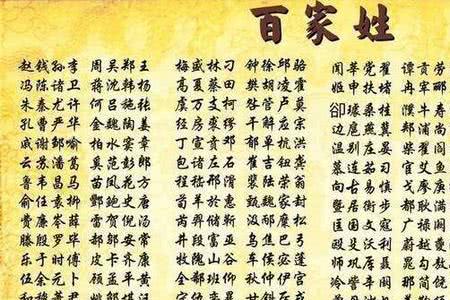 百家姓
赵钱孙李 周吴郑王 梅盛林刁 钟徐邱骆 闻莘党翟 谭贡劳
冯陈诸卫 蒋沈韩杨 高夏蔡田 樊胡凌霍 姬申扶堵 冉宰郦
朱秦尤许 何吕施张 虞万支柯 昝管卢莫 郤璩桑桂 濮牛寿
孔曹严华 金魏陶姜 经房裘缪 干解应宗 边扈燕冀 郏浦尚
戚谢邹喻 柏水窦章 丁宣贲邓 郁单杭洪 温别庄晏 柴瞿阎
云苏潘葛 奚范彭郎 包诸左石 崔吉钮龚 慕连茹习 宦艾鱼
鲁韦昌马 苗凤花方 程嵇邢滑 裴陆荣翁 向古易慎 戈廖庾
俞任袁柳 酆鲍史唐 荀羊於惠 甄曲家封 暨居衡步 都耿满
费廉岑薛 雷贺倪汤 芮羿储靳 汲邴糜松 匡国文寇 广禄阙
滕殷罗毕 郝邬安常 井段富巫 乌焦巴弓 欧殳沃利 蔚越夔
乐于时傅 皮卞齐康 牧隗山谷 车侯宓蓬 师巩厍聂 晁勾敖
伍余元卜 顾孟平黄 全郗班仰 秋仲伊宫 冷訾辛阚 那简饶